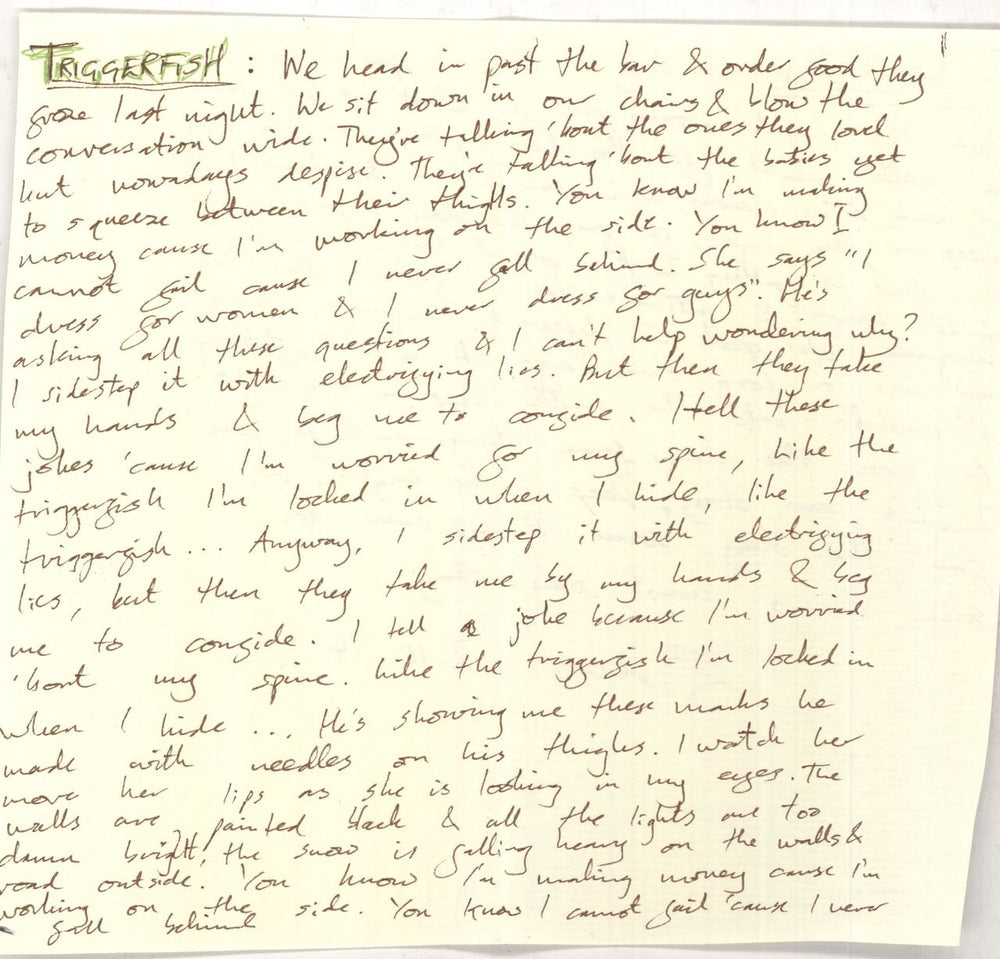 TRIGGERFISH : We head in past the bar & order food they
froze last night. We sit down in our chairs & blow the
conversation wide. They're talking 'bout the ones they loved
but nowadays despise. They're talking 'bout the babies yet
to squeeze between their thighs. You know I'm making
money cause I'm working on the side. You know I
cannot fail cause I never fall behind. She says "I
dress for women & I never dress for guys". He's
asking all these questions & I can't help wondering why?
I sidestep it with electrifying lies. But then they take
my hands & beg me to confide. I tell these
jokes 'cause I'm worried for my spine, Like the
triggerfish I'm locked in when I hide, like the
triggerfish ... Anyway, I sidestep it with electrifying
lies, but then they take me by my hands & beg
me to confide. I tell a joke because I'm worried
'bout my spine. Like the triggerfish I'm locked in
when I hide ... He's showing me these marks he
made with needles on his thighs. I watch her
move her lips as she is looking in my eyes. The
walls are painted black & all the lights are too
damn bright, the snow is falling heavy on the walls &
road outside. You know I'm making money cause I'm
working on the side. You know I cannot fail 'cause I never
fall behind